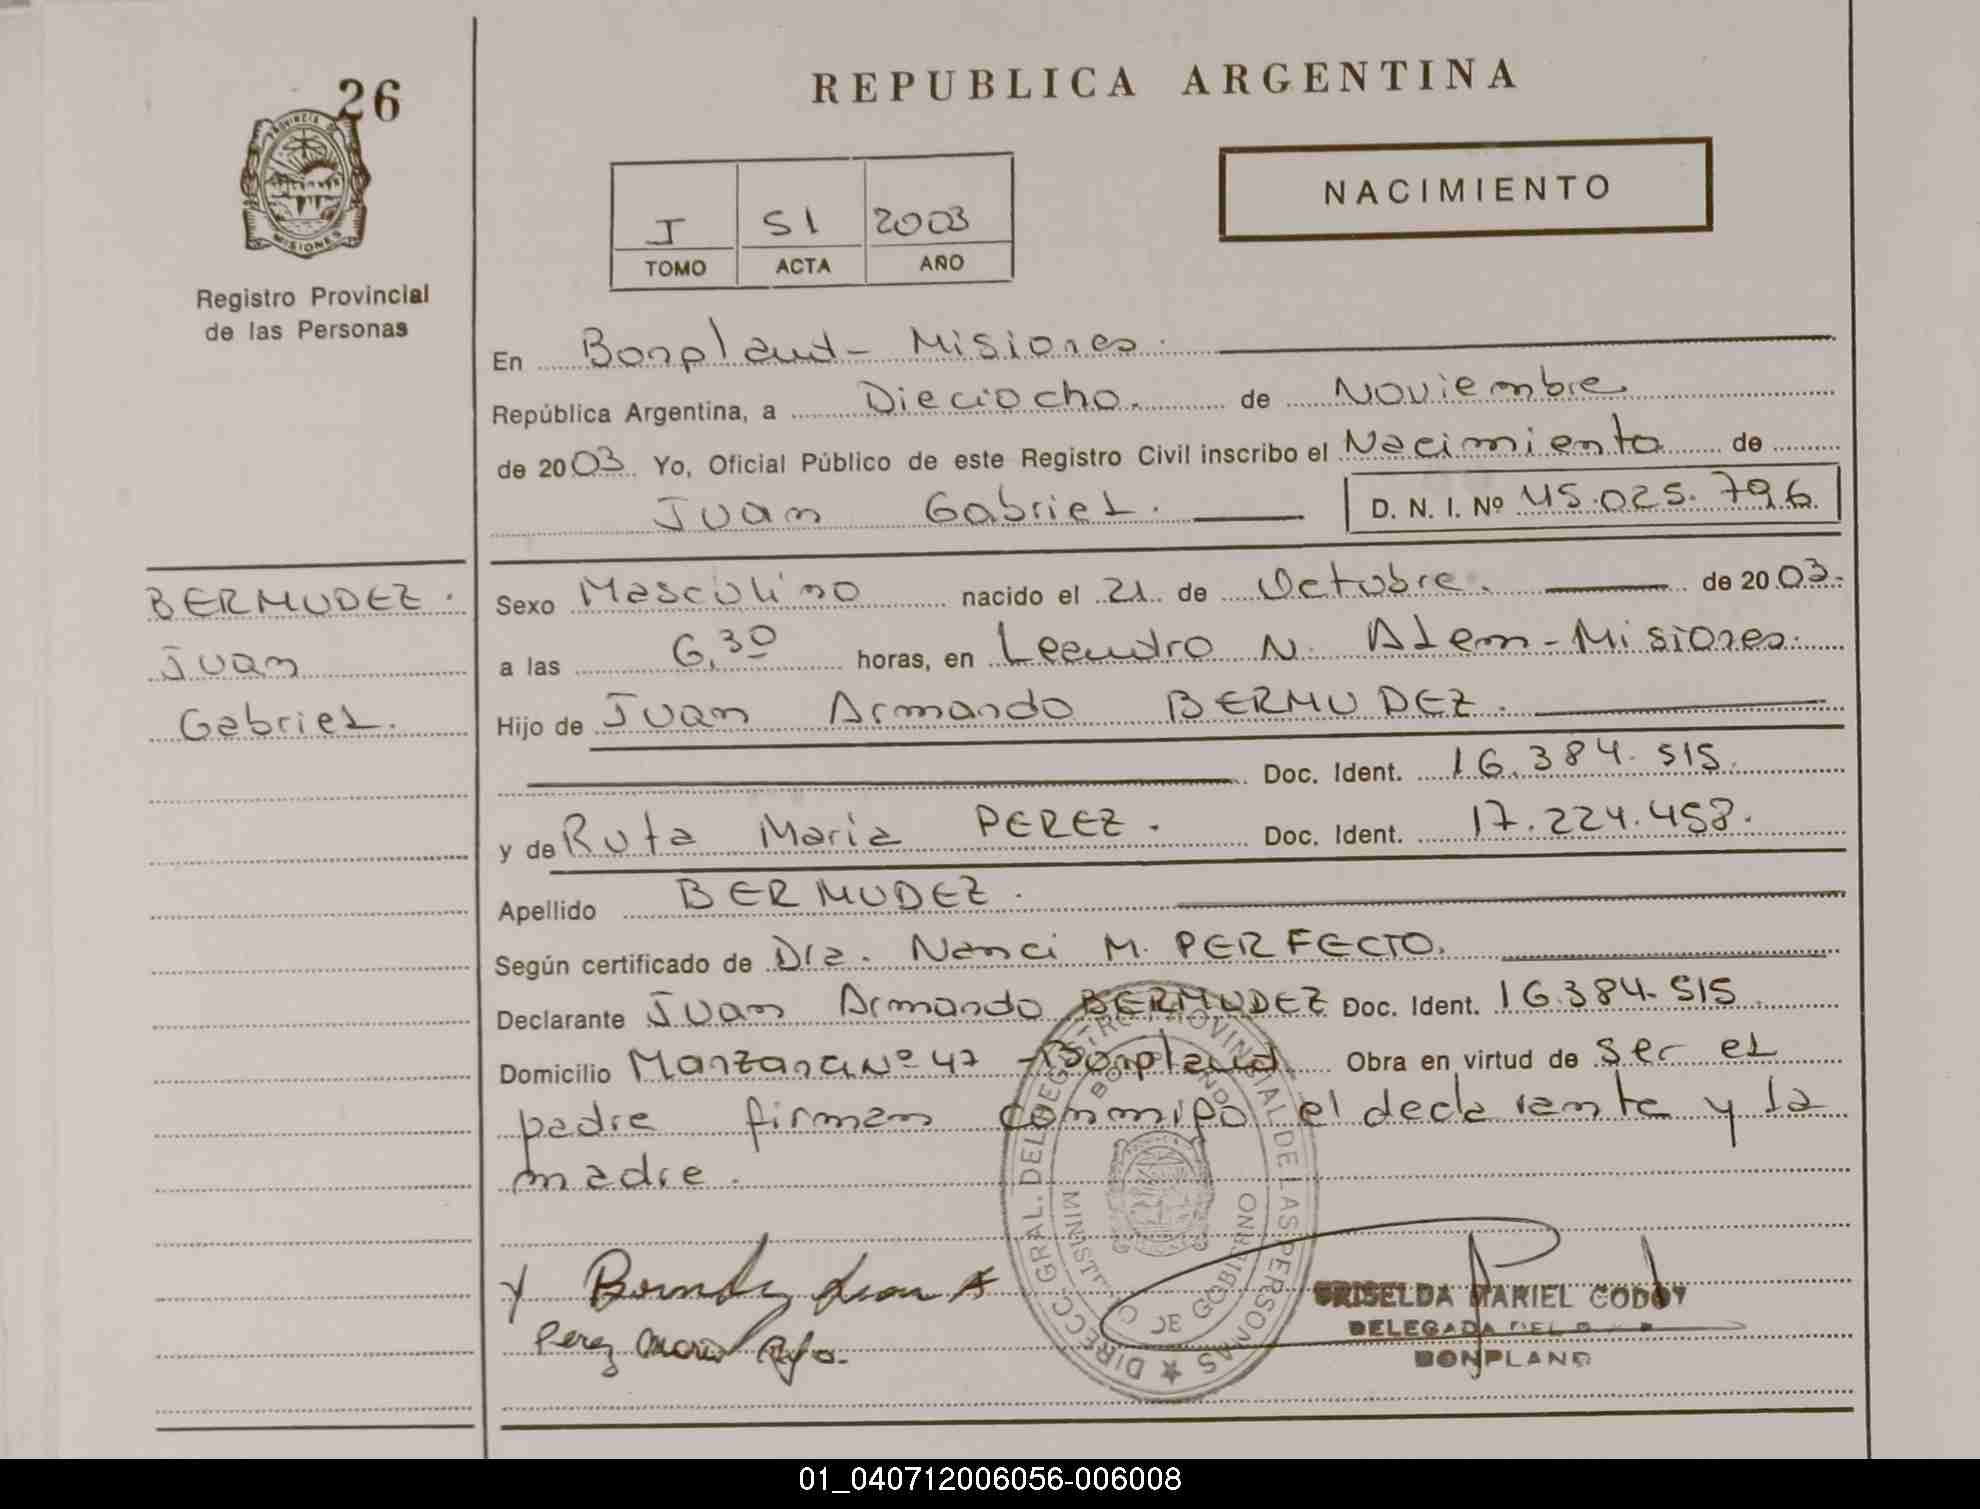 26
REPUBLICA ARGENTINA
PROVINCIA DE
MISIONES
NACIMIENTO
I 51 2003
TOMO ACTA AÑO
Registro Provincial
de las Personas
En Bonpland - Misiones.
República Argentina, a Dieciocho. de Noviembre
de 2003 Yo, Oficial Público de este Registro Civil inscribo el Nacimiento de
Juan Gabriel. D. N. I. Nº 45.025.796
BERMUDEZ.
Juan
Gabriel.
Sexo Masculino nacido el 21 de Octubre. de 2003.
a las 6,30 horas, en Leandro N. Alem - Misiones.
Hijo de Juan Armando BERMUDEZ.
Doc. Ident. 16.384.515.
y de Ruta Maria PEREZ. Doc. Ident. 17.224.458.
Apellido BERMUDEZ.
Según certificado de Dra. Nanci M. PERFECTO.
Declarante Juan Armando BERMUDEZ Doc. Ident. 16.384.515
Domicilio Manzana Nº 47 - Bonpland Obra en virtud de ser el
padre firman conmigo el declarante y la
madre.
DIRECC. GRAL. DEL REGISTRO PROVINCIAL DE LAS PERSONAS
GOBIERNO
Perez Maria
GRISELDA MARIEL GODOY
DELEGADA DEL
BONPLAND
01_040712006056-006008